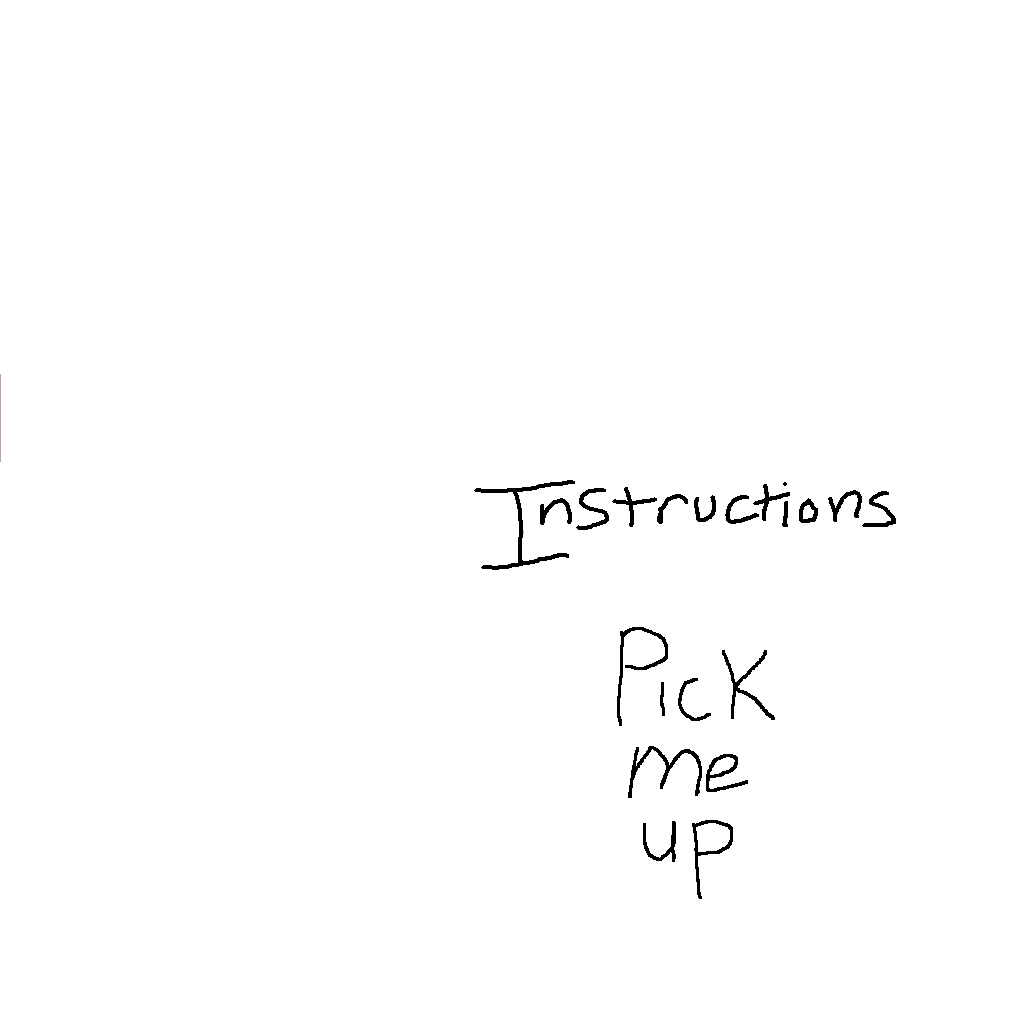 Instructions
Pick
me
up